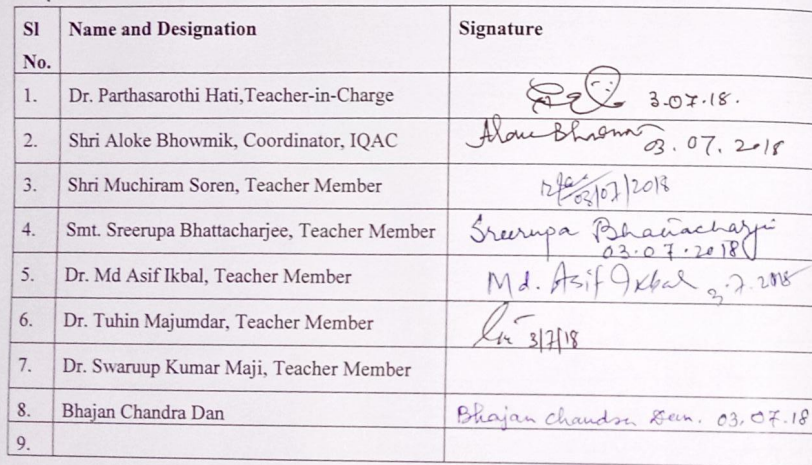 Sl Name and Designation Signature
No.
1. Dr. Parthasarothi Hati,Teacher-in-Charge 3.07.18.
2. Shri Aloke Bhowmik, Coordinator, IQAC
03.07.2018
3. Shri Muchiram Soren, Teacher Member 03/07/2018
4. Smt. Sreerupa Bhattacharjee, Teacher Member Sreerupa Bhattacharjee
03.07.2018
5. Dr. Md Asif Ikbal, Teacher Member Md. Asif Ikbal 3.7.2018
6. Dr. Tuhin Majumdar, Teacher Member 3/7/18
7. Dr. Swaruup Kumar Maji, Teacher Member
8. Bhajan Chandra Dan Bhajan Chandra Dan. 03.07.18
9.